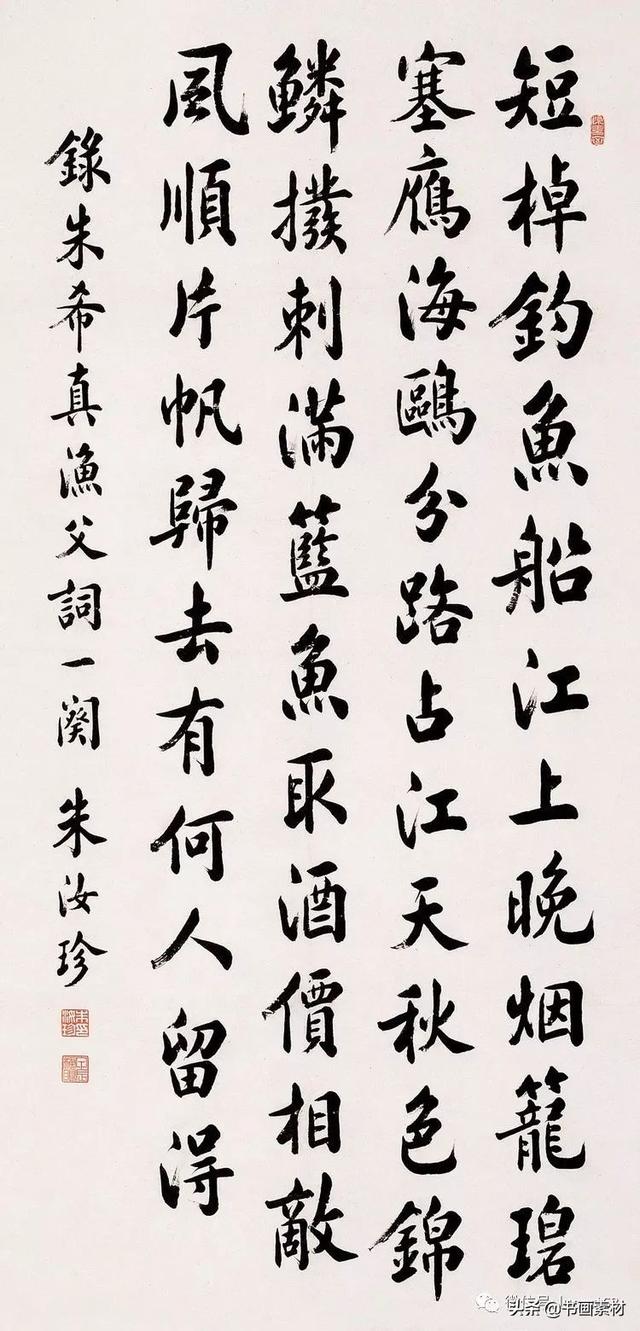 短棹釣魚船江上晚烟籠碧
塞鴈海鷗分路占江天秋色錦
鱗撥刺滿籃魚取酒價相敵
風順片帆歸去有何人留得
錄朱希真漁父詞一闋 朱汝珍
头条 @书画素材